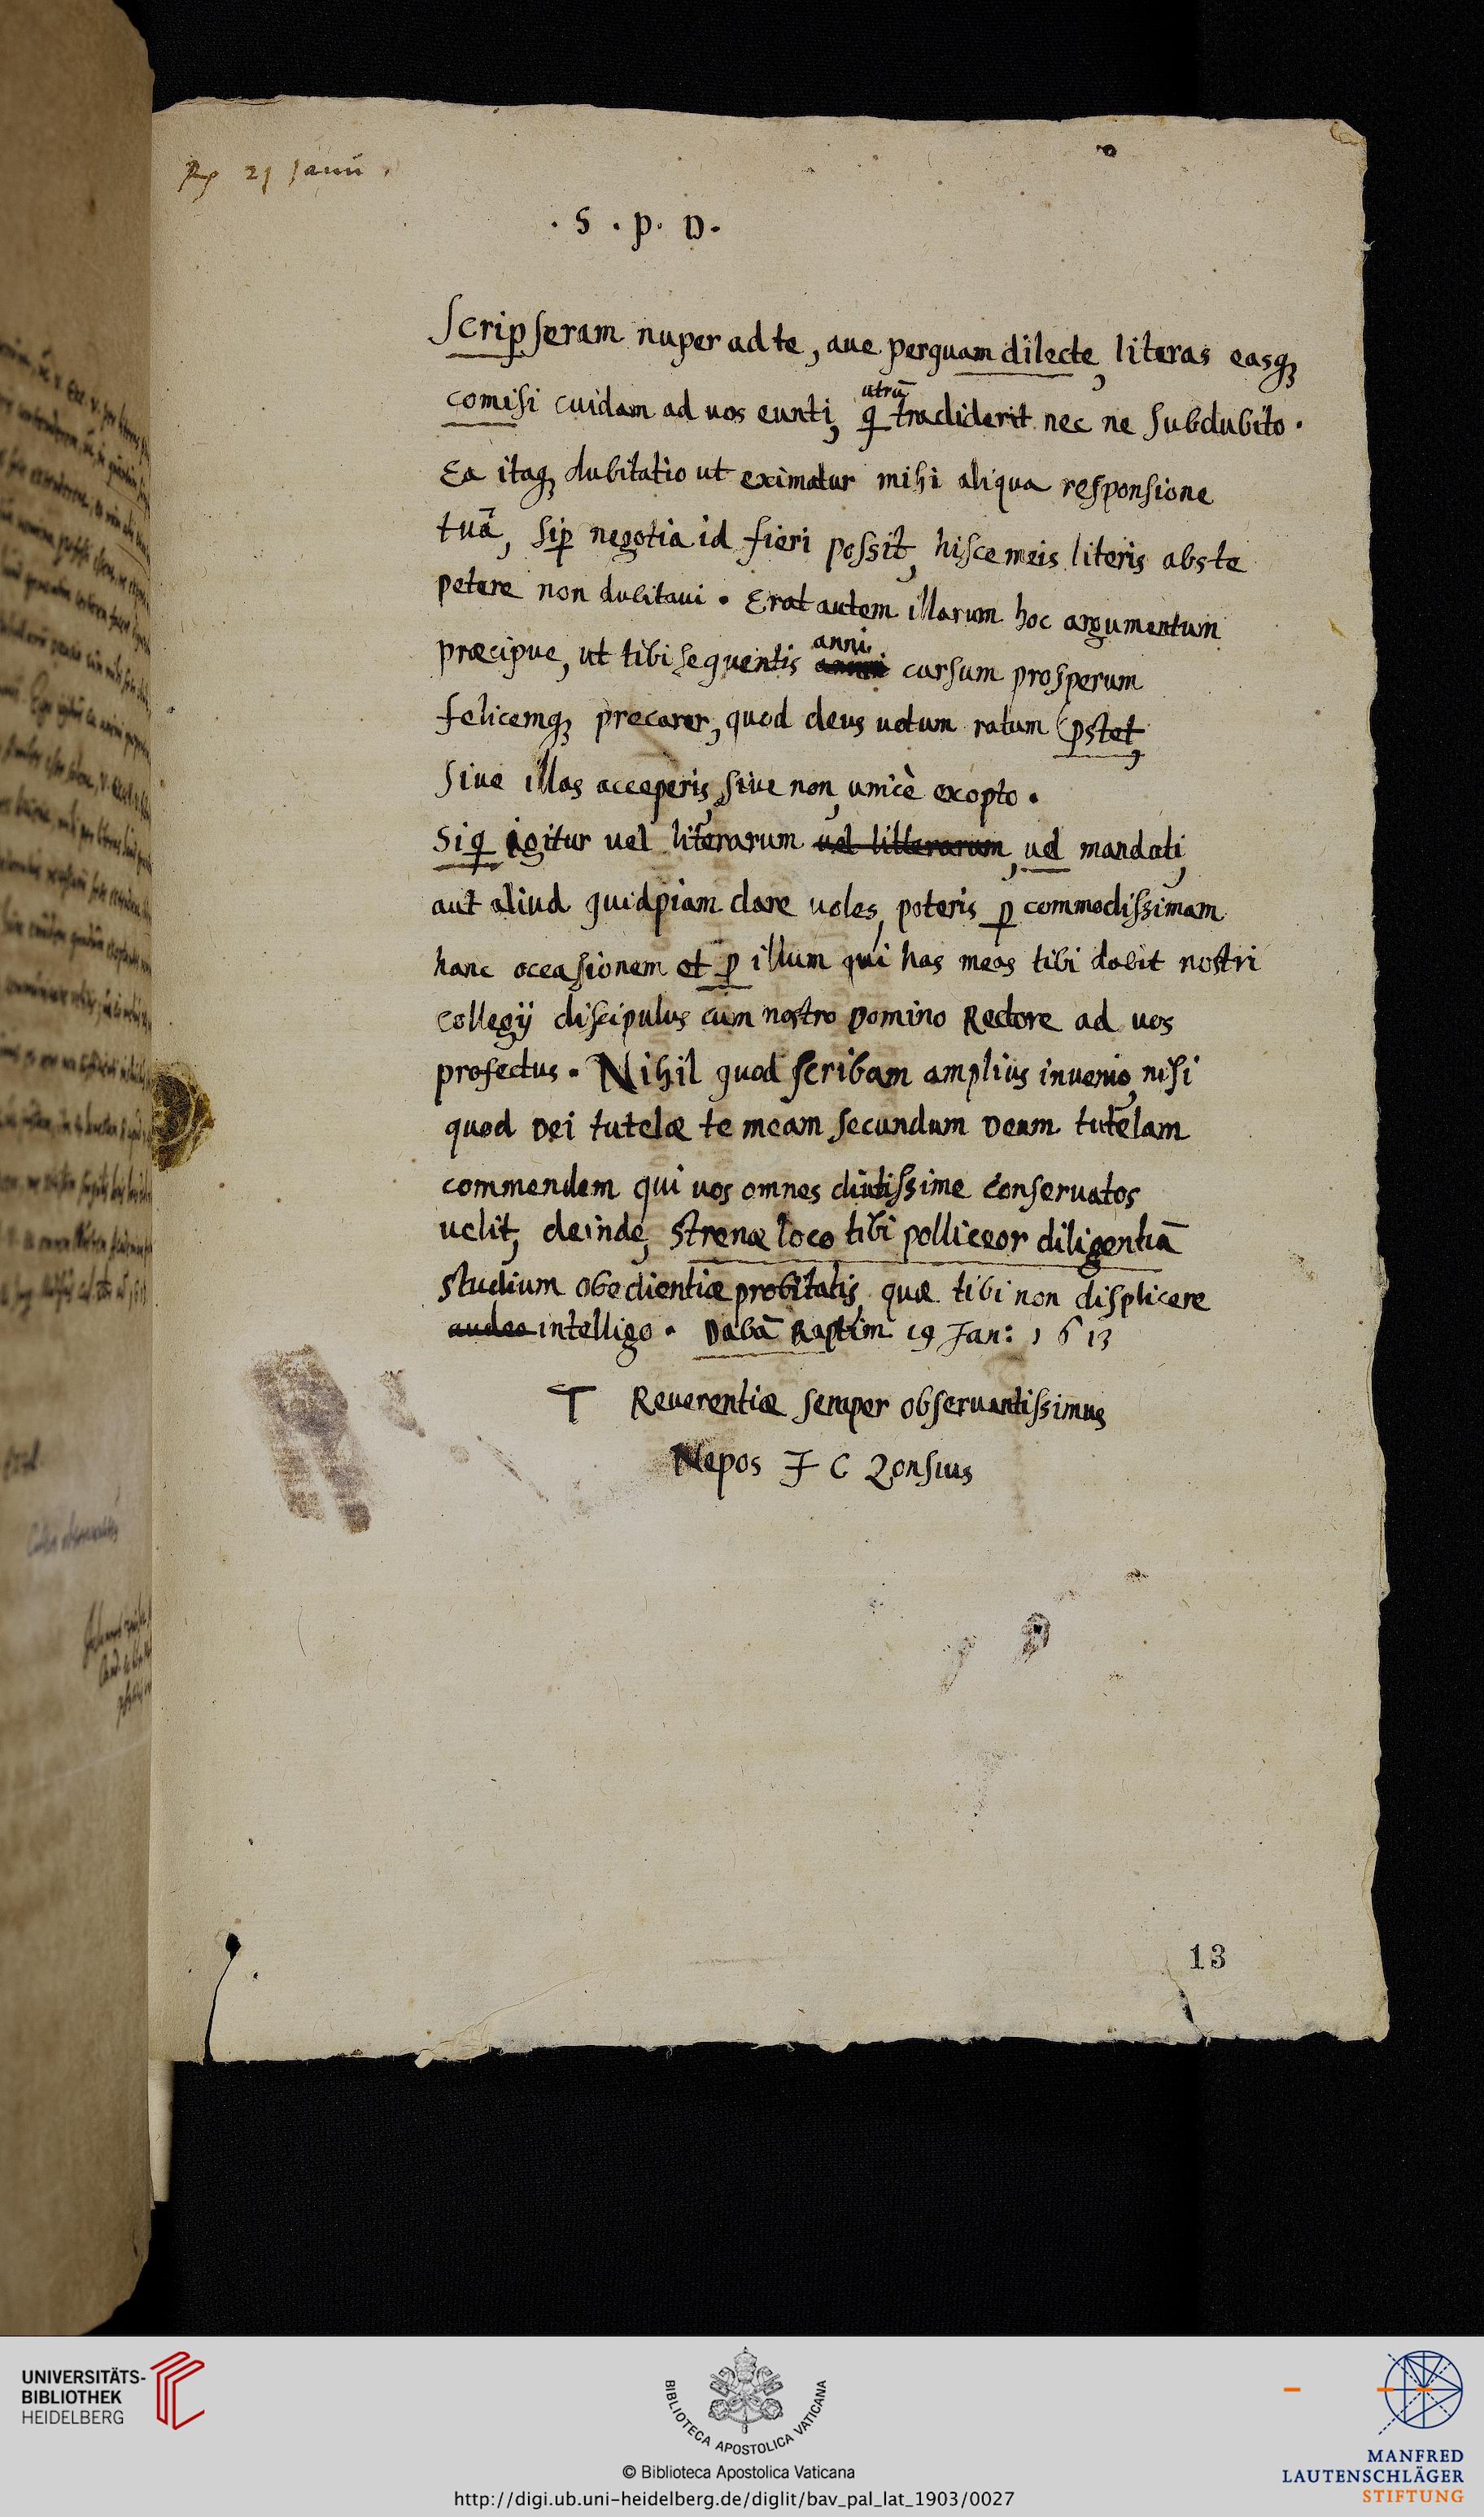 Rp 21 Januü
. S . P . D .
Scripseram nuper ad te, aue perquam dilecte, literas easq;
comisi cuidam ad uos eunti, q utrū tradiderit nec ne subdubito .
Ea itaq; dubitatio ut eximatur mihi aliqua responsione
tuā, sip negotia id fieri possit, hisce meis literis abs te
petere non dubitaui . Erat autem illarum hoc argumentum
præcipue, ut tibi sequentis anni cursum prosperum
felicemq; precarer, quod deus uotum ratum pstet,
siue illas acceperis, siue non, unicè exopto .
Siq igitur uel literarum uel litterarum, uel mandati,
aut aliud quidpiam dare uoles, poteris p commodissimam
hanc occasionem et p illum qui has meas tibi dabit nostri
collegij discipulus cum nostro Domino Rectore ad uos
profectus . Nihil quod scribam amplius inuenio, nisi
quod Dei tutelæ te meam secundum Deum tutelam
commendem qui uos omnes diutissime conseruatos
uelit, deinde, strenæ loco tibi polliceor diligentiā
studium obedientiæ probitatis, quæ tibi non displicere
audeo intelligo . Dabā Raptim 19 Jan: 1613
T Reuerentiæ semper obseruantissimus
Nepos J C Zonsius
13
UNIVERSITÄTS-
BIBLIOTHEK
HEIDELBERG
BIBLIOTECA APOSTOLICA VATICANA
© Biblioteca Apostolica Vaticana
http://digi.ub.uni-heidelberg.de/diglit/bav_pal_lat_1903/0027
MANFRED
LAUTENSCHLÄGER
STIFTUNG